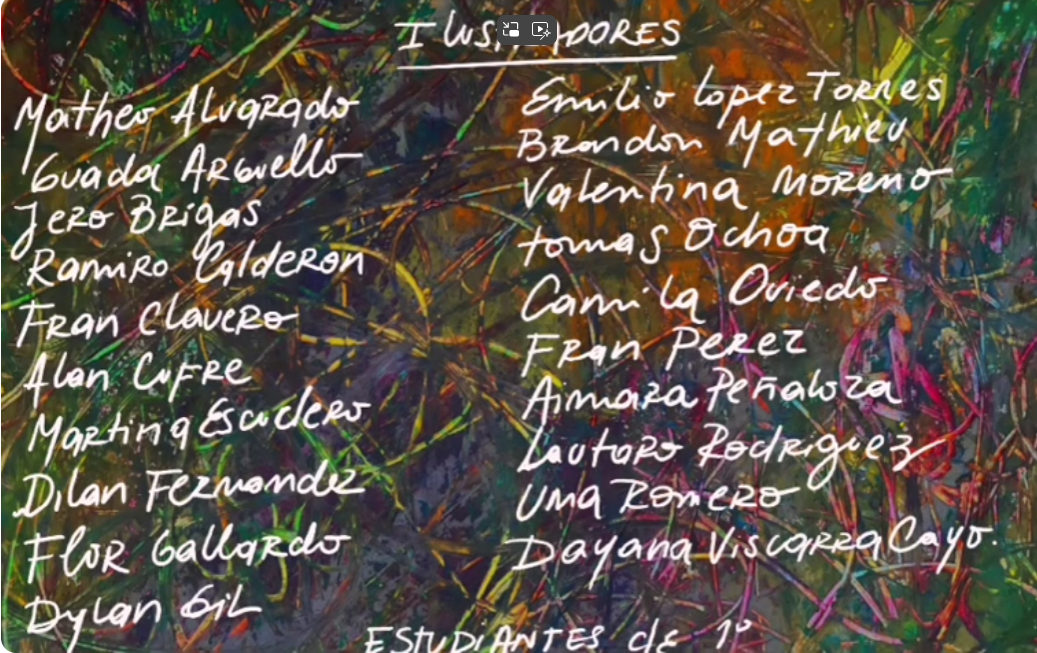 Matheo Alvarado
Guada Arguello
Jero Brigas
Ramiro Calderon
Fran Clavero
Alan Cufre
Martina Escudero
Dilan Fernandez
Flor Gallardo
Dylan Gil
Emilio Lopez Torres
Brandon Mathieu
Valentina Moreno
tomas Ochoa
Camila Oviedo
Fran Perez
Aimara Peñaloza
Lautaro Rodriguez
Uma Romero
Dayana Viscarra Cayo.
ESTUDIANTES de 1º